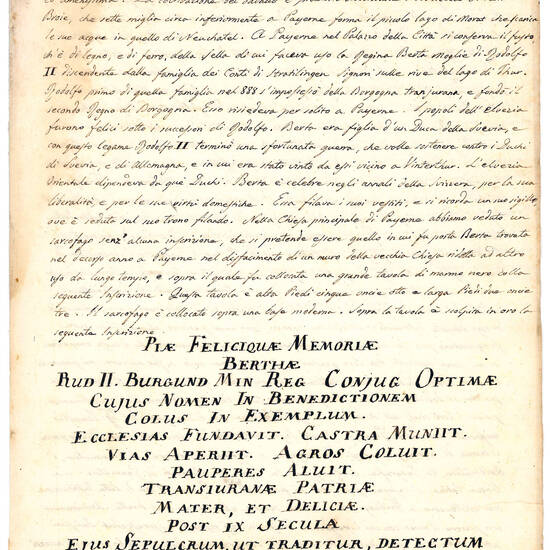 Broie, che sette miglia circa inferiormente a Payerne forma il picolo lago di Morat che scarica
le sue acque in quello di Neuchatel. A Payerne nel Palazzo della Città si conserva il fusto,
ch'è di legno, e di ferro, della sella di cui faceva uso la Regina Berta moglie di Rodolfo
II discendente dalla famiglia dei Conti di Stratilingen Signori sulle rive del lago di Thur.
Rodolfo primo di quella famiglia nel 888 s'impossessò della Borgogna Transjurana, e fondò il
secondo Regno di Borgogna. Esso risiedeva per solito a Payerne. I popoli dell'elvezia
furono felici sotto i successori di Rodolfo. Berta era figlia d'un Duca della Suevia, e
con questo legame Rodolfo II terminò una sfortunata guerra, che volle sostenere contro i Duchi
di Suevia, e di Allemagna, e in cui era stato vinto da essi vicino a Vinterthur. L'elvezia
Orientale dipendeva da que Duchi. Berta è celebre negli annali della Svizzera, per la sua
liberalità, e per le sue virtù domestiche. Essa filava i suoi vestiti, e si ricorda un suo sigillo,
ove è seduta sul suo trono filando. Nella Chiesa principale di Payerne abbiamo veduto un
sarcofago senz'alcuna inscrizione, che si pretende essere quello in cui fu posta Berta trovata
nel decorso anno a Payerne nel disfacimento di un muro della vecchia Chiesa ridotta ad altro
uso da lungo tempo, e sopra il quale fu collocata una grande tavola di marmo nero colla
seguente Inscrizione. Questa tavola è alta Piedi cinque oncie otto e larga Piedi due oncie
tre. Il sarcofago è collocato sopra una base moderna. Sopra la tavola è scolpita in oro la
seguente Inscrizione
PIÆ FELICIQUÆ MEMORIÆ
BERTHÆ
RUD II. BURGUND MIN REG CONJUG OPTIMÆ
CUJUS NOMEN IN BENEDICTIONEM
COLUS IN EXEMPLUM.
ECCLESIAS FUNDAVIT. CASTRA MUNIIT.
VIAS APERIIT. AGROS COLUIT.
PAUPERES ALUIT.
TRANSIURANÆ PATRIÆ
MATER, ET DELICIÆ.
POST IX SECULA
EJUS SEPULCRUM, UT TRADITUR, DETECTUM